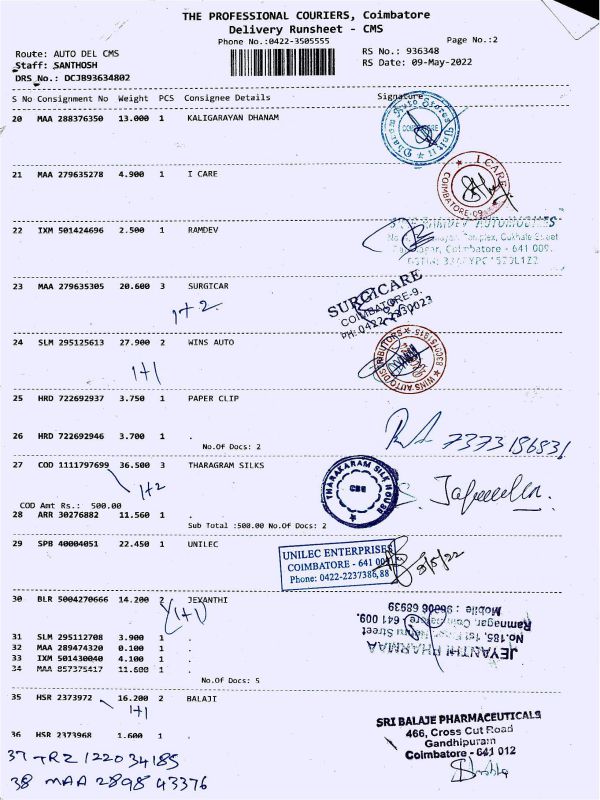 THE PROFESSIONAL COURIERS, Coimbatore
Delivery Runsheet - CMS
Phone No.:0422-3505555
Page No.:2
Route: AUTO DEL CMS
RS No.: 936348
Staff: SANTHOSH
RS Date: 09-May-2022
DRS No.: DCJB93634802
S No Consignment No Weight PCS Consignee Details Signature
20 MAA 288376350 13.000 1 KALIGARAYAN DHANAM
COIMBATORE
21 MAA 279635278 4.900 1 I CARE
I CARE
COIMBATORE-09
22 IXM 501424696 2.500 1 RAMDEV
RAMDEV AUTOMOBILES
Coimbatore - 641 009.
23 MAA 279635305 20.600 3 SURGICAR
1+2
SURGICARE
COIMBATORE-9.
24 SLM 295125613 27.900 2 WINS AUTO
1+1
WINS AUTO DISTRIBUTORS
25 HRD 722692937 3.750 1 PAPER CLIP
26 HRD 722692946 3.700 1 .
No.Of Docs: 2
7373186831
27 COD 1111797699 36.500 3 THARAGRAM SILKS
1+2
THARAKARAM SILK HOUSE
CBE
COD Amt Rs.: 500.00
28 ARR 30276882 11.560 1 .
Sub Total :500.00 No.Of Docs: 2
29 SPB 40004051 22.450 1 UNILEC
UNILEC ENTERPRISES
COIMBATORE - 641 009
Phone: 0422-2237386,88
9/5/22
30 BLR 5004270666 14.200 2 JEYANTHI
(1+1)
JEYANTHI PHARMAA
No.185, 1st Floor, Nehru Street
Ramnagar, Coimbatore - 641 009.
Mobile : 96006 68939
31 SLM 295112708 3.900 1 .
32 MAA 289474320 0.100 1 .
33 IXM 501430040 4.100 1 .
34 MAA 857375417 11.600 1 .
No.Of Docs: 5
35 HSR 2373972 16.200 2 BALAJI
1+1
36 HSR 2373968 1.600 1 .
SRI BALAJE PHARMACEUTICALS
466, Cross Cut Road
Gandhipuram
Coimbatore - 641 012
37 TRZ 122034185
38 MAA 289843376